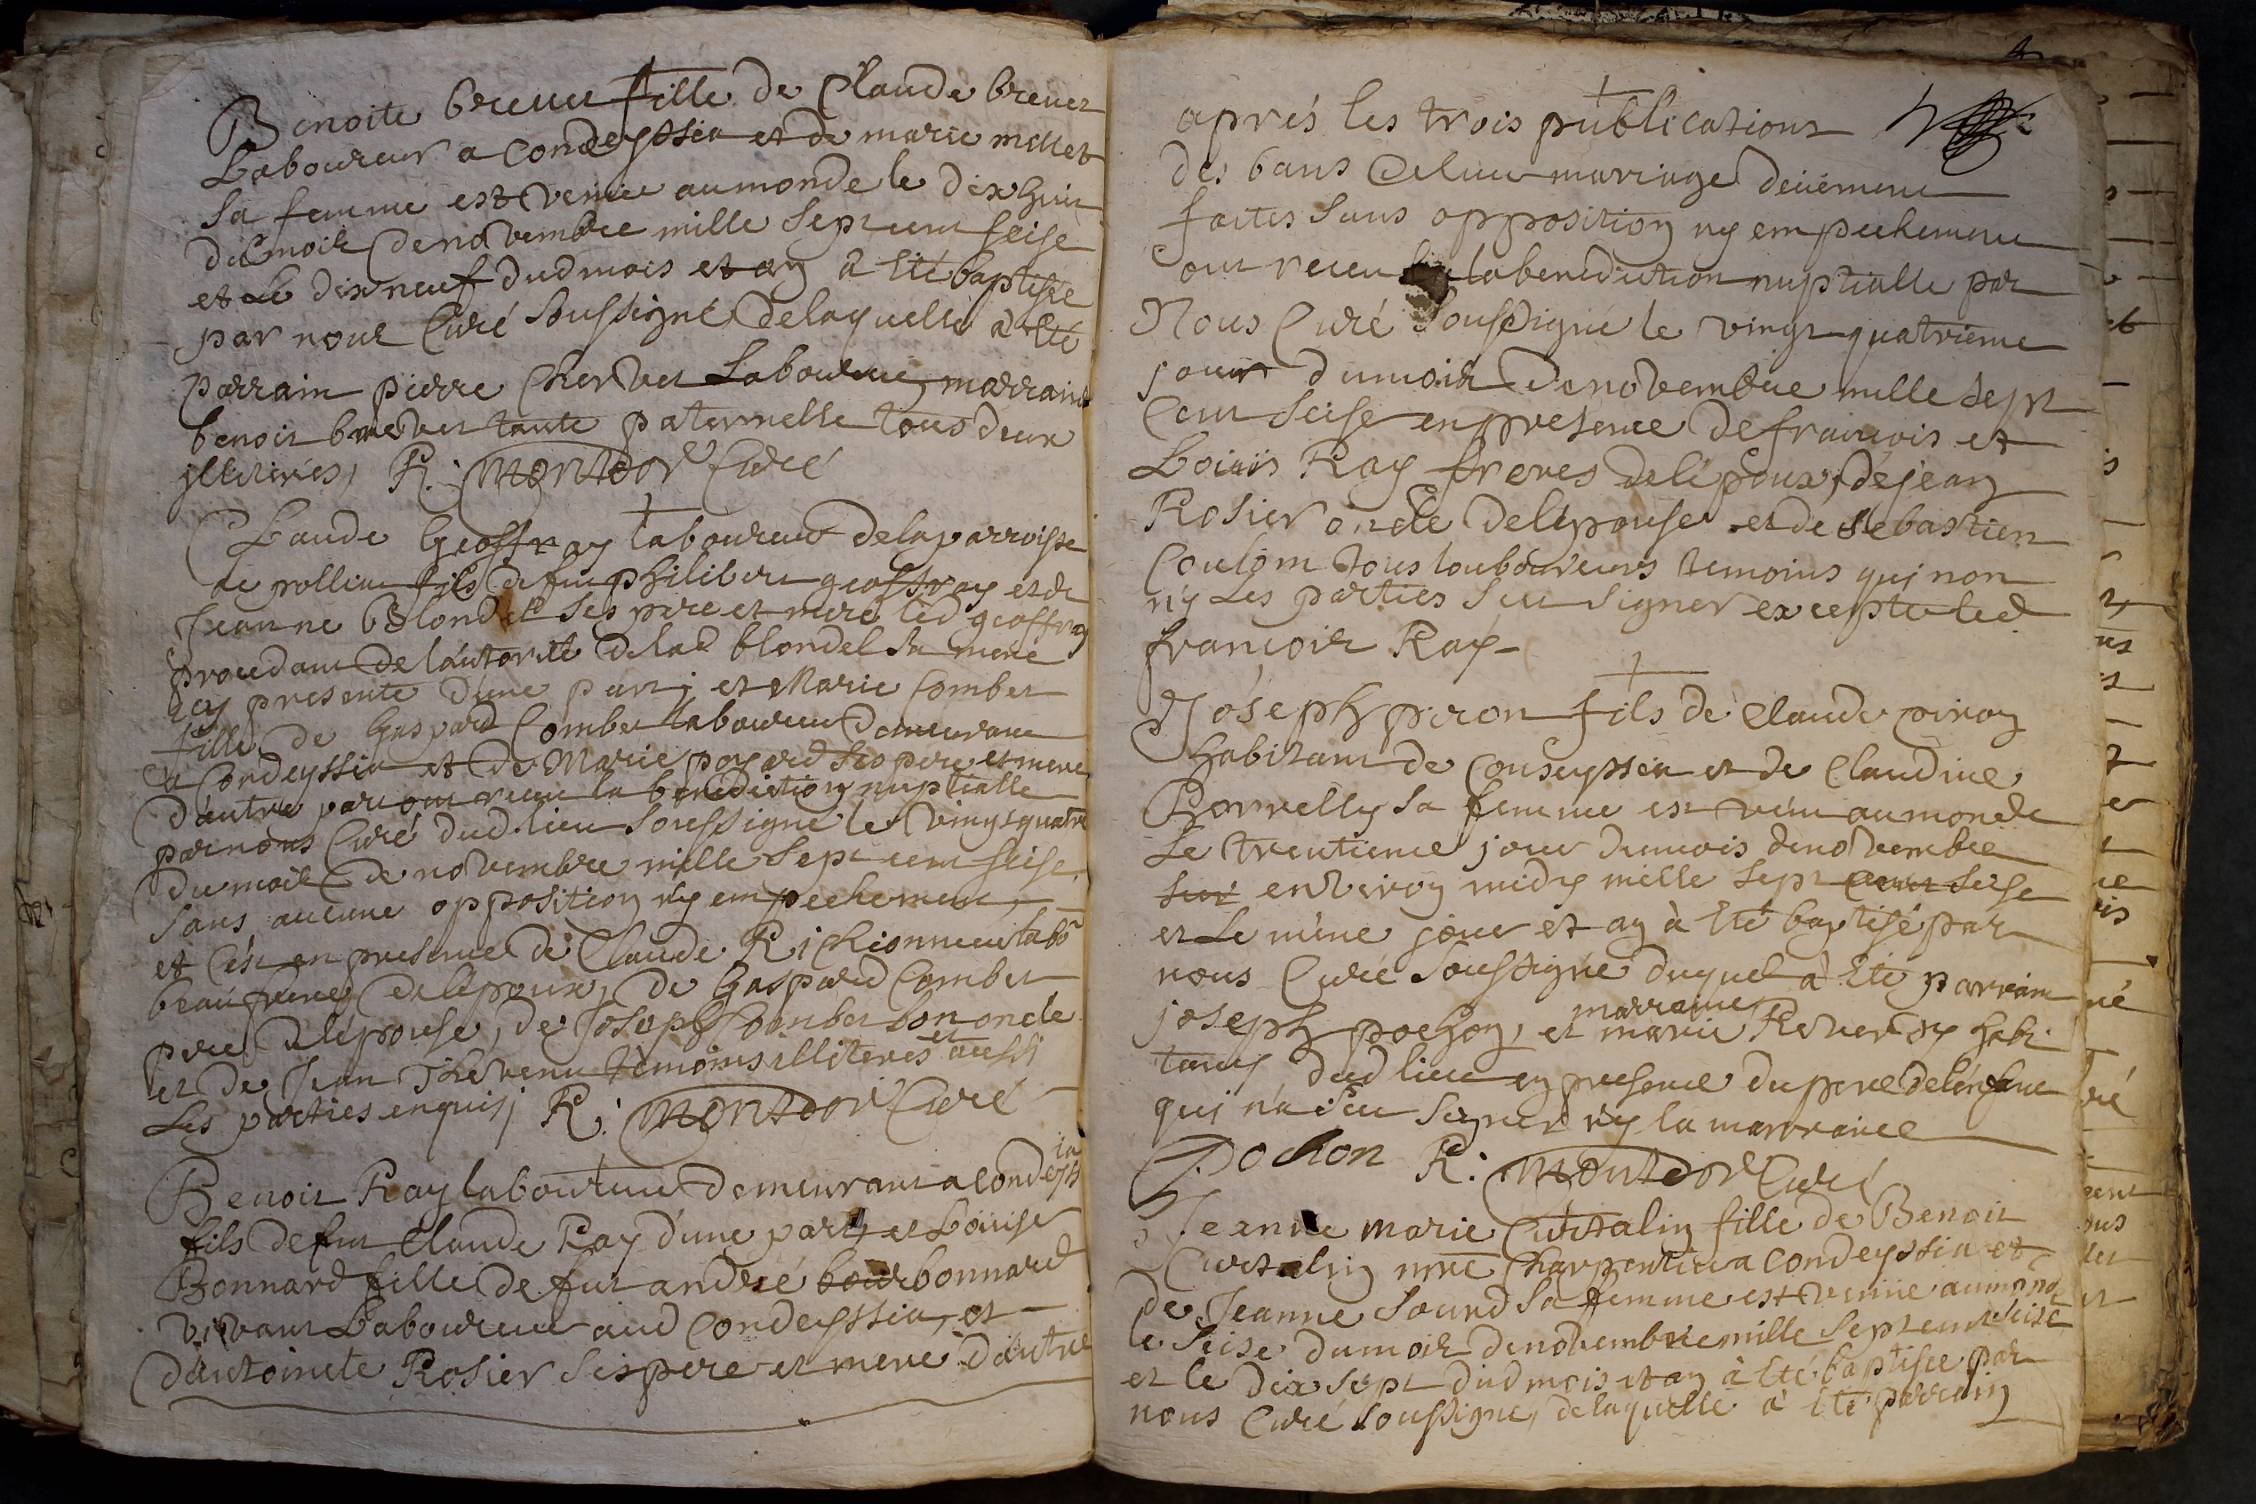 Benoite brevet fille de Claude brevet
Laboureur a Condeyssia et de marie millet
Sa femme est venue au monde le dixhuit
du mois de novembre mille sept cent seise
et Le dix neuf dud mois et an a êté baptisée
par nous Curé Soussigné, de laquelle a êté
parrain pierre Chervet Laboureur, marraine
benoit brevet tante paternelle tous deux
illiterés, R. Montdor Curé
Claude Geoffray laboureur de la parroisse
de pollieu fils de feu philibert geoffray et de
Jeanne Blondel Ses pere et mere led geoffray
procedant de l'autorité de lad blondel Sa mere
icy presente d'une part; et Marie Combet
fille de Gaspard Combet laboureur demeurant
a Condeyssia et de Marie poyard Ses pere et mere
d'autre part ont receu la benediction nuptialle
par nous Curé dud lieu Soussigné le vingtquatre
du mois de novembre mille Sept cent seise
Sans aucune opposition ny empechement,
et c'est en presence de Claude Richionnet labo
beaufrere de l'epoux, de Gaspard Combet
pere de l'epouse, de Joseph Combet Son oncle
et de Jean Thevenu têmoins illiterés et aussi
Les parties enquis; R: Montdor Curé
Benoit Ray laboureur demeurant a Condeyssia
fils de feu Claude Ray d'une part, et Loüise
Bonnard fille de feu andré bonnard
vivant Laboureur aud Condeyssia, et
d'antoinete Rosier Ses pere et mere d'autre
aprés les trois publications
des bans de leur mariage deüement
faites Sans opposition ny empechement
ont receu la benediction nuptialle par
Nous Curé Soussigné le vingt quatrieme
jour du mois de novembre mille sept
Cent Seise en presence de francois et
Loüis Ray freres de l'epoux, de jean
Rosier oncle de l'epouse et de Sebastien
Coulom tous laboureurs temoins qui n'ont
ny Les parties Seu Signer excepté led
francois Ray
Joseph piron fils de Claude piron
habitant de Condeyssia et de Claudine
Borrelly Sa femme est venu au monde
Le trentieme jour du mois de novembre
environ midy mille Sept Cent Seise
et Le même jour et an à êté baptisé par
nous Curé Soussigné duquel à êté parrain
joseph pochon, et marraine marie Reverdy habi
tants dud lieu en presence du pere de l'enfant
qui n'a Seu Signer ny la marraine
Pochon R: Montdor Curé
Jeanne marie Curtalin fille de Benoit
Curtalin mre Charpentier a Condeyssia et
de Jeanne Sourd Sa femme est venüe au monde
le Seise du mois de novembre mille Sept cent Seise
et le dix Sept dud mois et an à êté baptisée par
nous Curé Soussigné, de laquelle a êté parrain